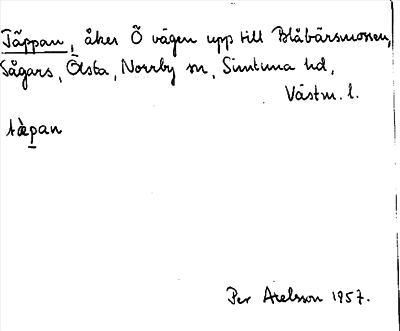 Täppan, åker Ö vägen upp till Blåbärsmossen,
Sågars, Ölsta, Norrby sn, Simtuna hd,
Västm. l.
tæ̀p̲an
Per Axelsson 1957.